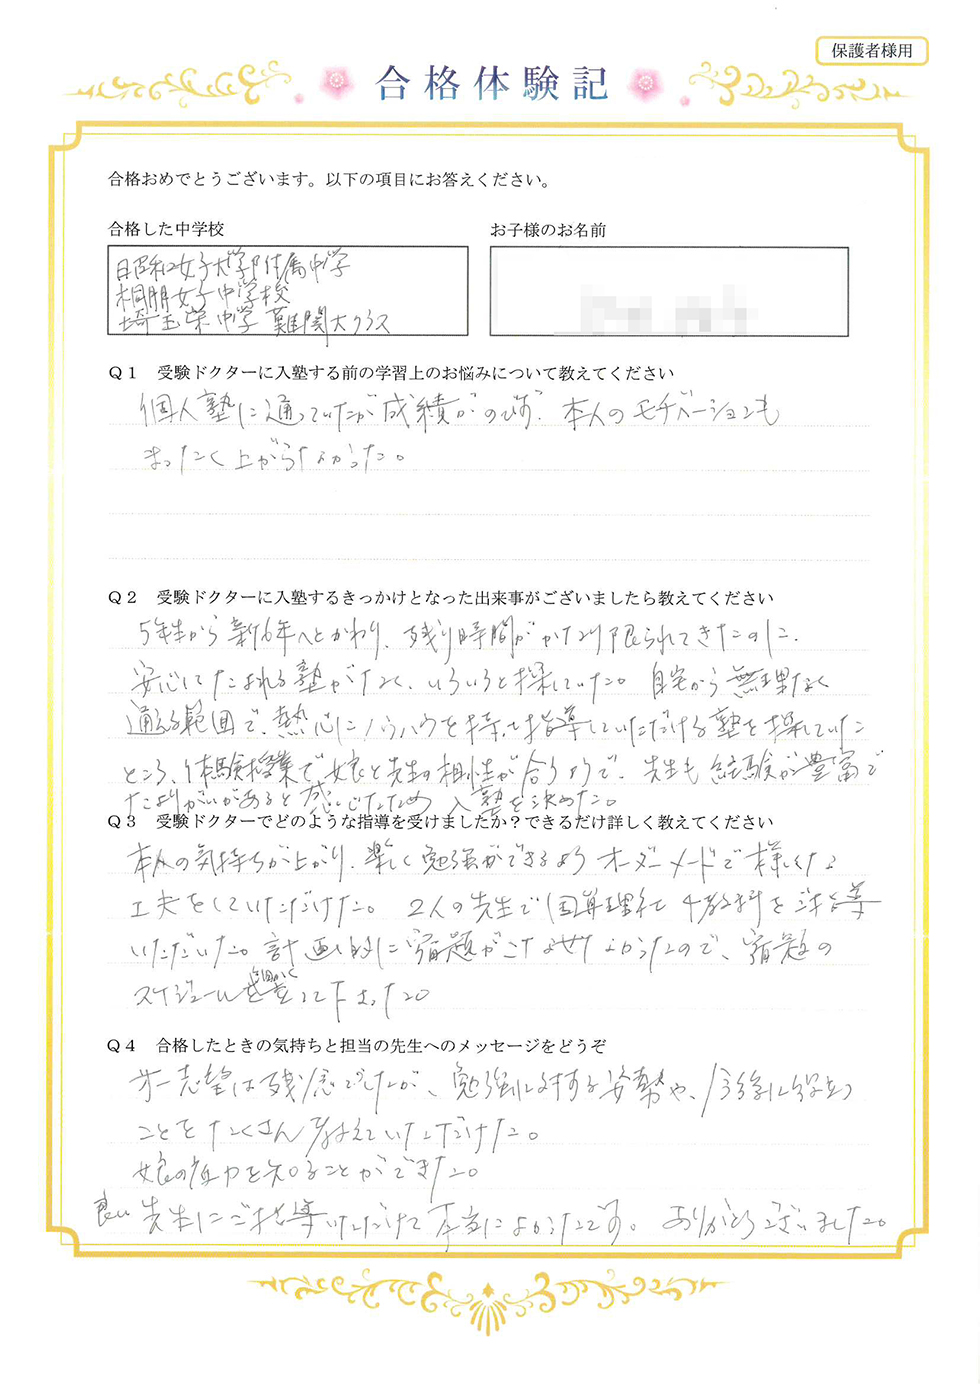 保護者様用
合格体験記
合格おめでとうございます。以下の項目にお答えください。
合格した中学校
お子様のお名前
昭和女子大学附属中学
桐朋女子中学校
埼玉栄中学 難関大クラス
Q1 受験ドクターに入塾する前の学習上のお悩みについて教えてください
個人塾に通っていたが成績がのびず、本人のモチベーションも
まったく上がらなかった。
Q2 受験ドクターに入塾するきっかけとなった出来事がございましたら教えてください
5年生から新6年へとかわり、残り時間がかなり限られてきたのに、
安心してたよれる塾がなく、いろいろと探していた。自宅から無理なく
通える範囲で、熱心にノウハウを持って指導していただける塾を探していた
ところ、体験授業で娘と先生の相性が合うようで、先生も経験が豊富で
たよりがいがあると感じたため入塾を決めた。
Q3 受験ドクターでどのような指導を受けましたか？できるだけ詳しく教えてください
本人の気持ちが上がり、楽しく勉強ができるようオーダーメードで様々な
工夫をしていただけた。2人の先生で国算理社4教科を指導
いただいた。計画的に宿題がこなせなかったので、宿題の
スケジュールを細かく立てて下さった。
Q4 合格したときの気持ちと担当の先生へのメッセージをどうぞ
第一志望は残念でしたが、勉強に対する姿勢や、今後に役立つ
ことをたくさん教えていただけた。
娘の実力を知ることができた。
良い先生にご指導いただけて本当によかったです。ありがとうございました。